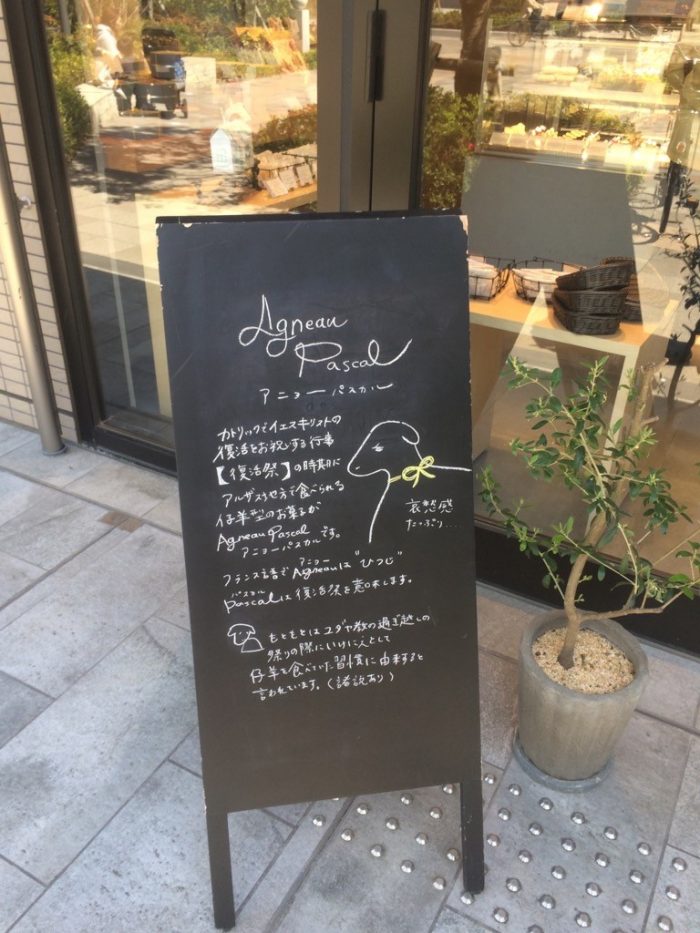 Agneau
Pascal
アニョーパスカル
カトリックでイエスキリストの
復活をお祝いする行事
【復活祭】の時期に
アルザス地方で食べられる
仔羊型のお菓子が
Agneau Pascal
アニョーパスカルです。
哀愁感
たっぷり...
アニョー
フランス語でAgneauは"ひつじ"
パスカル
Pascalは復活祭を意味します。
もともとはユダヤ教の過ぎ越しの
祭りの際にいけにえとして
仔羊を食べていた習慣に由来すると
言われています。(諸説あり)